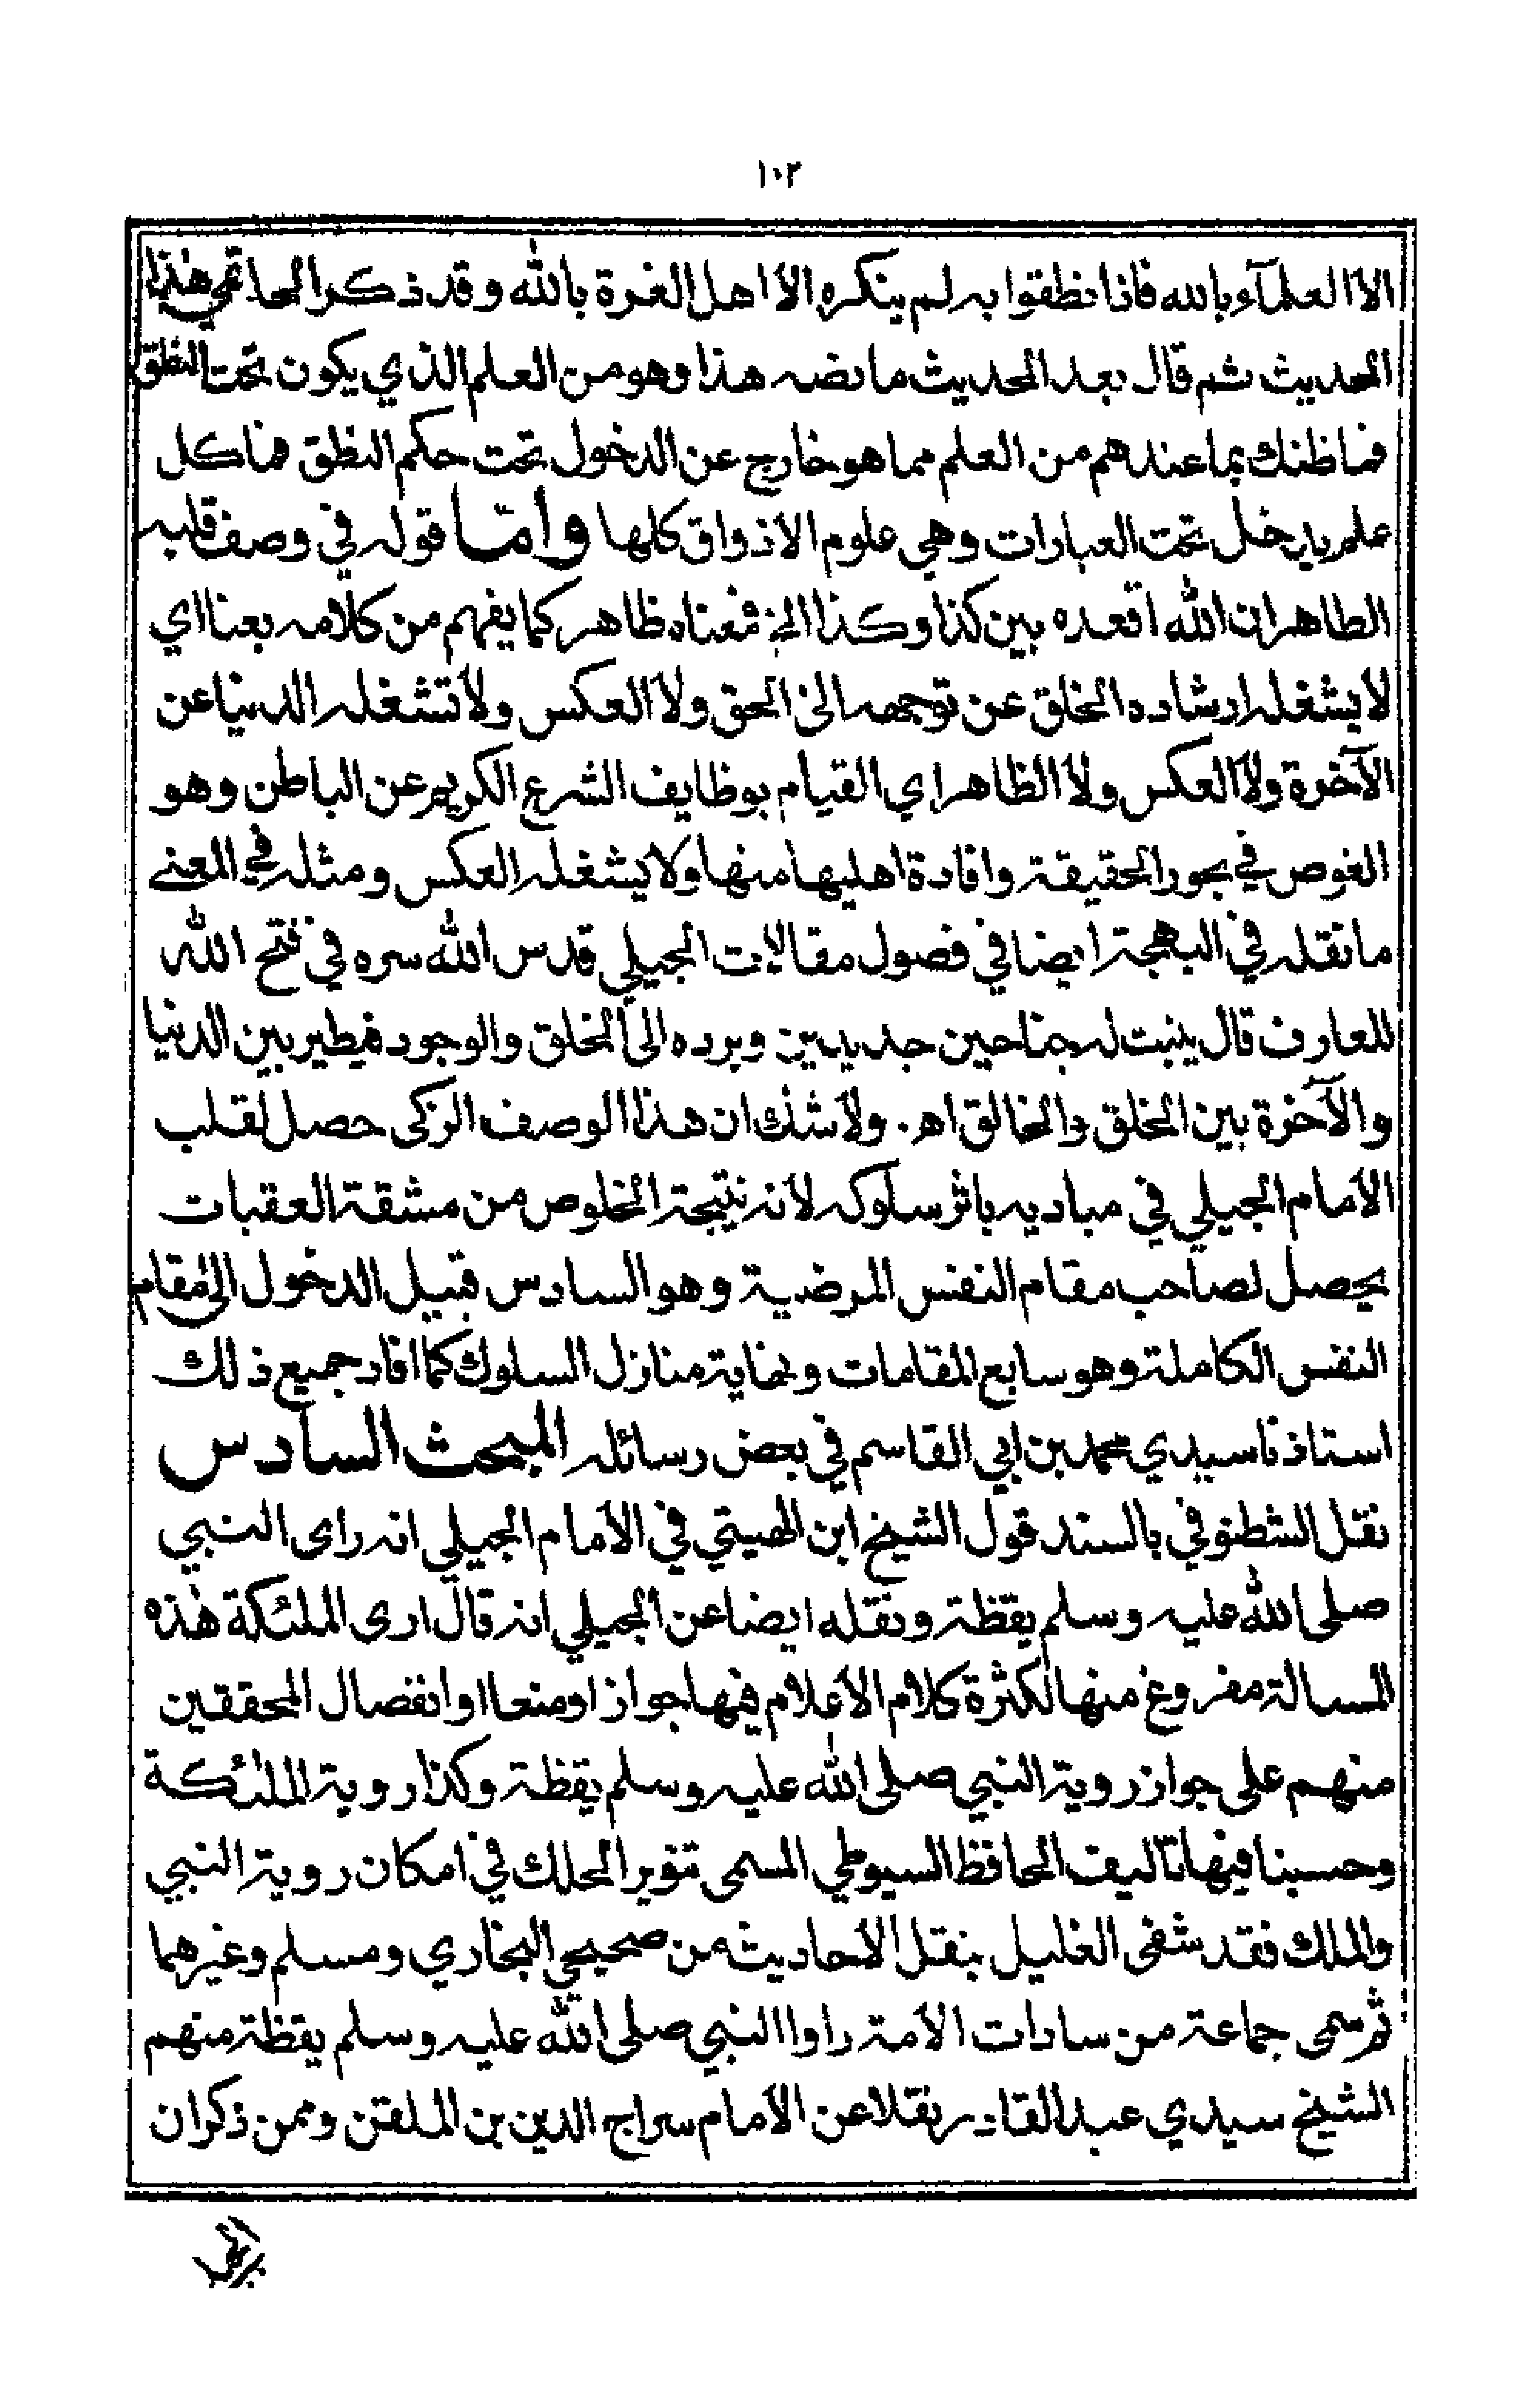 ١٠٢
الا العلمآء بالله فاذا نطقوا به لم ينكره الا اهل الغرة بالله وقد ذكر الحاتمي هذا
الحديث ثم قال بعد الحديث ما نصه هذا وهو من العلم الذي يكون تحت النطق
فما ظنك بما عندهم من العلم مما هو خارج عن الدخول تحت حكم النطق فما كل
علم يدخل تحت العبارات وهي علوم الاذواق كلها وامّا قوله في وصف قلبه
الطاهر ان الله اقعده بين كذا وكذا الخ فمعناه ظاهر كما يفهم من كلامه بعنا اي
لا يشغله ارشاده الخلق عن توجهه الى الحق ولا العكس ولا تشغله الدنيا عن
الآخرة ولا العكس ولا الظاهر اي القيام بوظايف الشرع الكريم عن الباطن وهو
الغوص في بحور الحقيقة وافادة اهليها منها ولا يشغله العكس ومثله في المعنى
ما نقله في البهجة ايضا في فصول مقالات الجيلي قدس الله سره في فتح الله
للعارف قال ينبت له جناحين جديدين ويرده الى الخلق والوجود فيطير بين الدنيا
والآخرة بين الخلق والخالق اه. ولا شك ان هذا الوصف الزكى حصل لقلب
الامام الجيلي في مباديه باثر سلوكه لانه نتيجة الخلوص من مشقة العقبات
يحصل لصاحب مقام النفس المرضية وهو السادس قبيل الدخول الى مقام
النفس الكاملة وهو سابع المقامات ونهاية منازل السلوك كما افاد جميع ذلك
استاذنا سيدي محمد بن ابي القاسم في بعض رسائله المبحث السادس
نقل الشطنوفي بالسند قول الشيخ ابن الهيتي في الامام الجيلي انه راى النبي
صلى الله عليه وسلم يقظة ونقله ايضا عن الجيلي انه قال ارى الملئكة هذه
المسالة مفروغ منها لكثرة كلام الاعلام فيها جوازا ومنعا وانفصال المحققين
منهم على جواز روية النبي صلى الله عليه وسلم يقظة وكذا روية الملئكة
وحسبنا فيها تاليف الحافظ السيوطي المسمى تنوير الحلك في امكان روية النبي
والملك فقد شفى الغليل بنقل الاحاديث من صحيحي البخاري ومسلم وغيرهما
ثم سمى جماعة من سادات الامة راوا النبي صلى الله عليه وسلم يقظة منهم
الشيخ سيدي عبد القادر نقلا عن الامام سراج الدين بن الملقن وممن ذكر ان